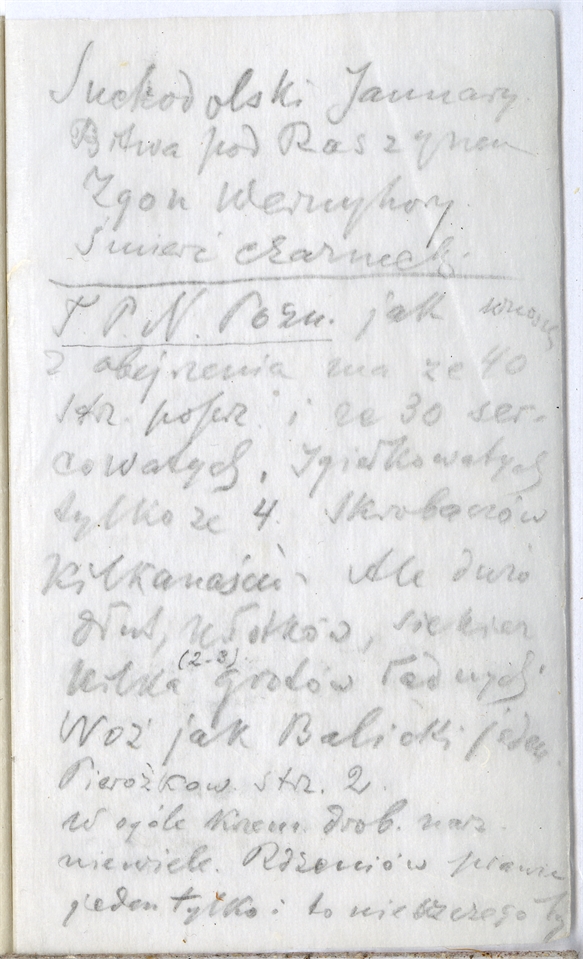 Suchodolski January
Bitwa pod Raszynem
Zgon Wernyhory
Śmierć Czarneck.
T P. N. Pozn. jak wnoszę
z obejrzenia ma ze 40
strz. poprz i ze 30 ser-
cowatych, Igiełkowatych
tylko ze 4. Skrobaczów
Kilkanaście. Ale dużo
dłut, młotków, siekier
kilka (2-3) grotów ładnych
Nóż jak Balicki jeden.
Pierożkow. strz. 2.
W ogóle krzem. drob. narz.
niewiele. Rdzeniów prawie
jeden tylko i to nieszczegól